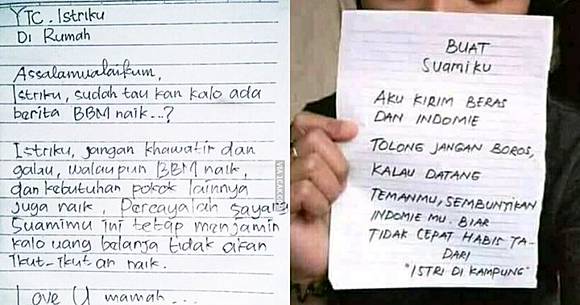 YTC. Istriku
Di Rumah
Assalamualaikum,
Istriku, sudah tau kan kalo ada
berita BBM naik...?
Istriku, jangan khawatir dan
galau, walaupun BBM naik,
dan kebutuhan pokok lainnya
juga naik, Percayalah sayang
Suamimu ini tetap menjamin
kalo uang belanja tidak akan
Ikut-Ikut-an naik.
Love U mamah...
BUAT
SUAMIKU
AKU KIRIM BERAS
DAN INDOMIE
TOLONG JANGAN BOROS,
KALAU DATANG
TEMANMU, SEMBUNYIKAN
INDOMIE MU. BIAR
TIDAK CEPAT HABIS TA-
DARI
"ISTRI DI KAMPUNG"